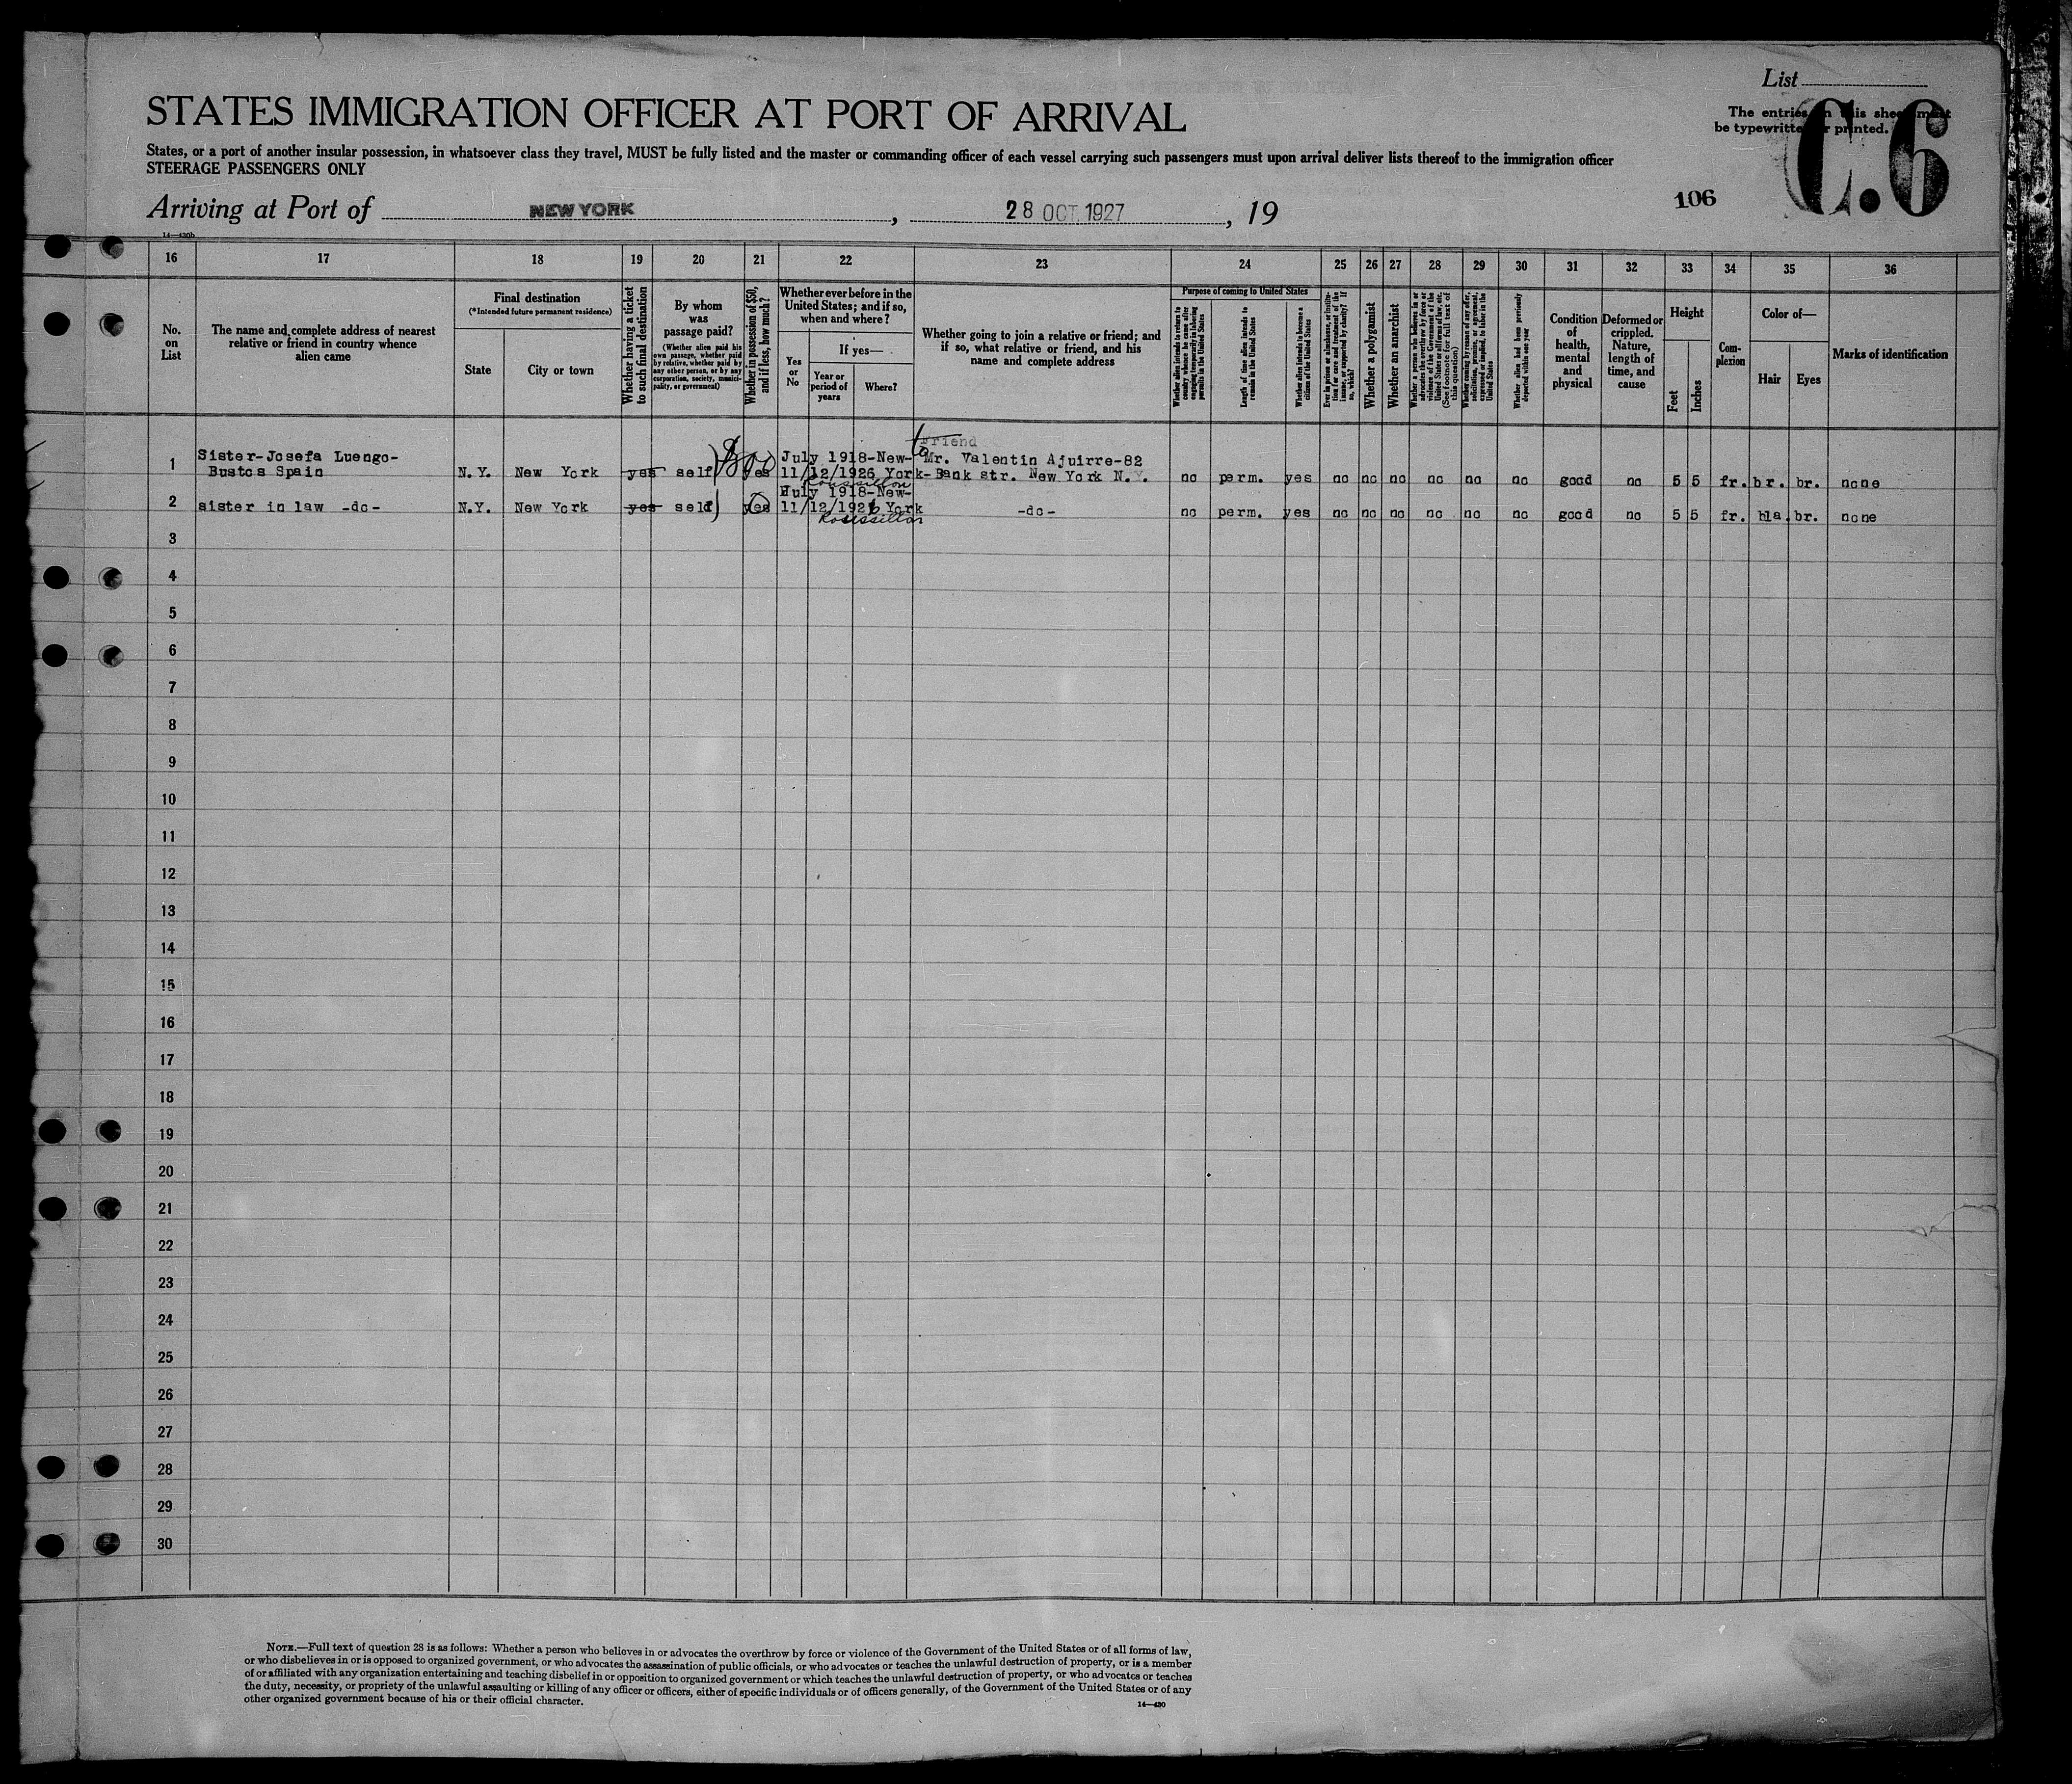 List
STATES IMMIGRATION OFFICER AT PORT OF ARRIVAL
The entries on this sheet must
be typewritten or printed.
C.6
States, or a port of another insular possession, in whatsoever class they travel, MUST be fully listed and the master or commanding officer of each vessel carrying such passengers must upon arrival deliver lists thereof to the immigration officer
STEERAGE PASSENGERS ONLY
106
Arriving at Port of NEW YORK, 28 OCT. 1927, 19
14—430b
16 17 18 19 20 21 22 23 24 25 26 27 28 29 30 31 32 33 34 35 36
No. on List
The name and complete address of nearest relative or friend in country whence alien came
Final destination
(*Intended future permanent residence)
State
City or town
Whether having a ticket to such final destination
By whom was passage paid?
(Whether alien paid his own passage, whether paid by relative, whether paid by any other person, or by any corporation, society, municipality, or government)
Whether in possession of $50, and if less, how much?
Whether ever before in the United States; and if so, when and where?
Yes or No
If yes—
Year or period of years
Where?
Whether going to join a relative or friend; and if so, what relative or friend, and his name and complete address
Purpose of coming to United States
Whether alien intends to return to country whence he came after engaging temporarily in laboring pursuits in the United States
Length of time alien intends to remain in the United States
Whether alien intends to become a citizen of the United States
Ever in prison or almshouse, or institution for care and treatment of the insane, or supported by charity? If so, which?
Whether a polygamist
Whether an anarchist
Whether a person who believes in or advocates the overthrow by force or violence of the Government of the United States or all forms of law, etc. (See footnote for full text of this question)
Whether coming by reason of any offer, solicitation, promise, or agreement, expressed or implied, to labor in the United States
Whether alien had been previously deported within one year
Condition of health, mental and physical
Deformed or crippled. Nature, length of time, and cause
Height
Feet
Inches
Complexion
Color of—
Hair
Eyes
Marks of identification
Friend
1 Sister-Josefa Luengo- July 1918-New- to Mr. Valentin Ajuirre-82
Bustos Spain N.Y. New York yes self $800 yes 11/12/1926 York-Bank str. New York N.Y. no perm. yes no no no no no no good no 5 5 fr. br. br. none
Roussillon
July 1918-New-
2 sister in law -do- N.Y. New York yes self yes 11/12/1926 York -do- no perm. yes no no no no no no good no 5 5 fr. bla. br. none
Roussillon
3
4
5
6
7
8
9
10
11
12
13
14
15
16
17
18
19
20
21
22
23
24
25
26
27
28
29
30
NOTE.—Full text of question 28 is as follows: Whether a person who believes in or advocates the overthrow by force or violence of the Government of the United States or of all forms of law,
or who disbelieves in or is opposed to organized government, or who advocates the assassination of public officials, or who advocates or teaches the unlawful destruction of property, or is a member
of or affiliated with any organization entertaining and teaching disbelief in or opposition to organized government or which teaches the unlawful destruction of property, or who advocates or teaches
the duty, necessity, or propriety of the unlawful assaulting or killing of any officer or officers, either of specific individuals or of officers generally, of the Government of the United States or of any
other organized government because of his or their official character.
14—430